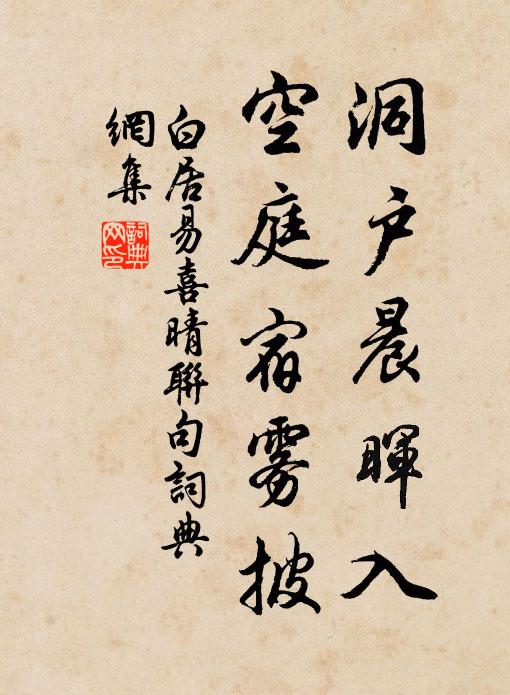 洞户晨暉入
空庭宿雾披
白居易喜晴聯句詞典
網集
詞典
网印